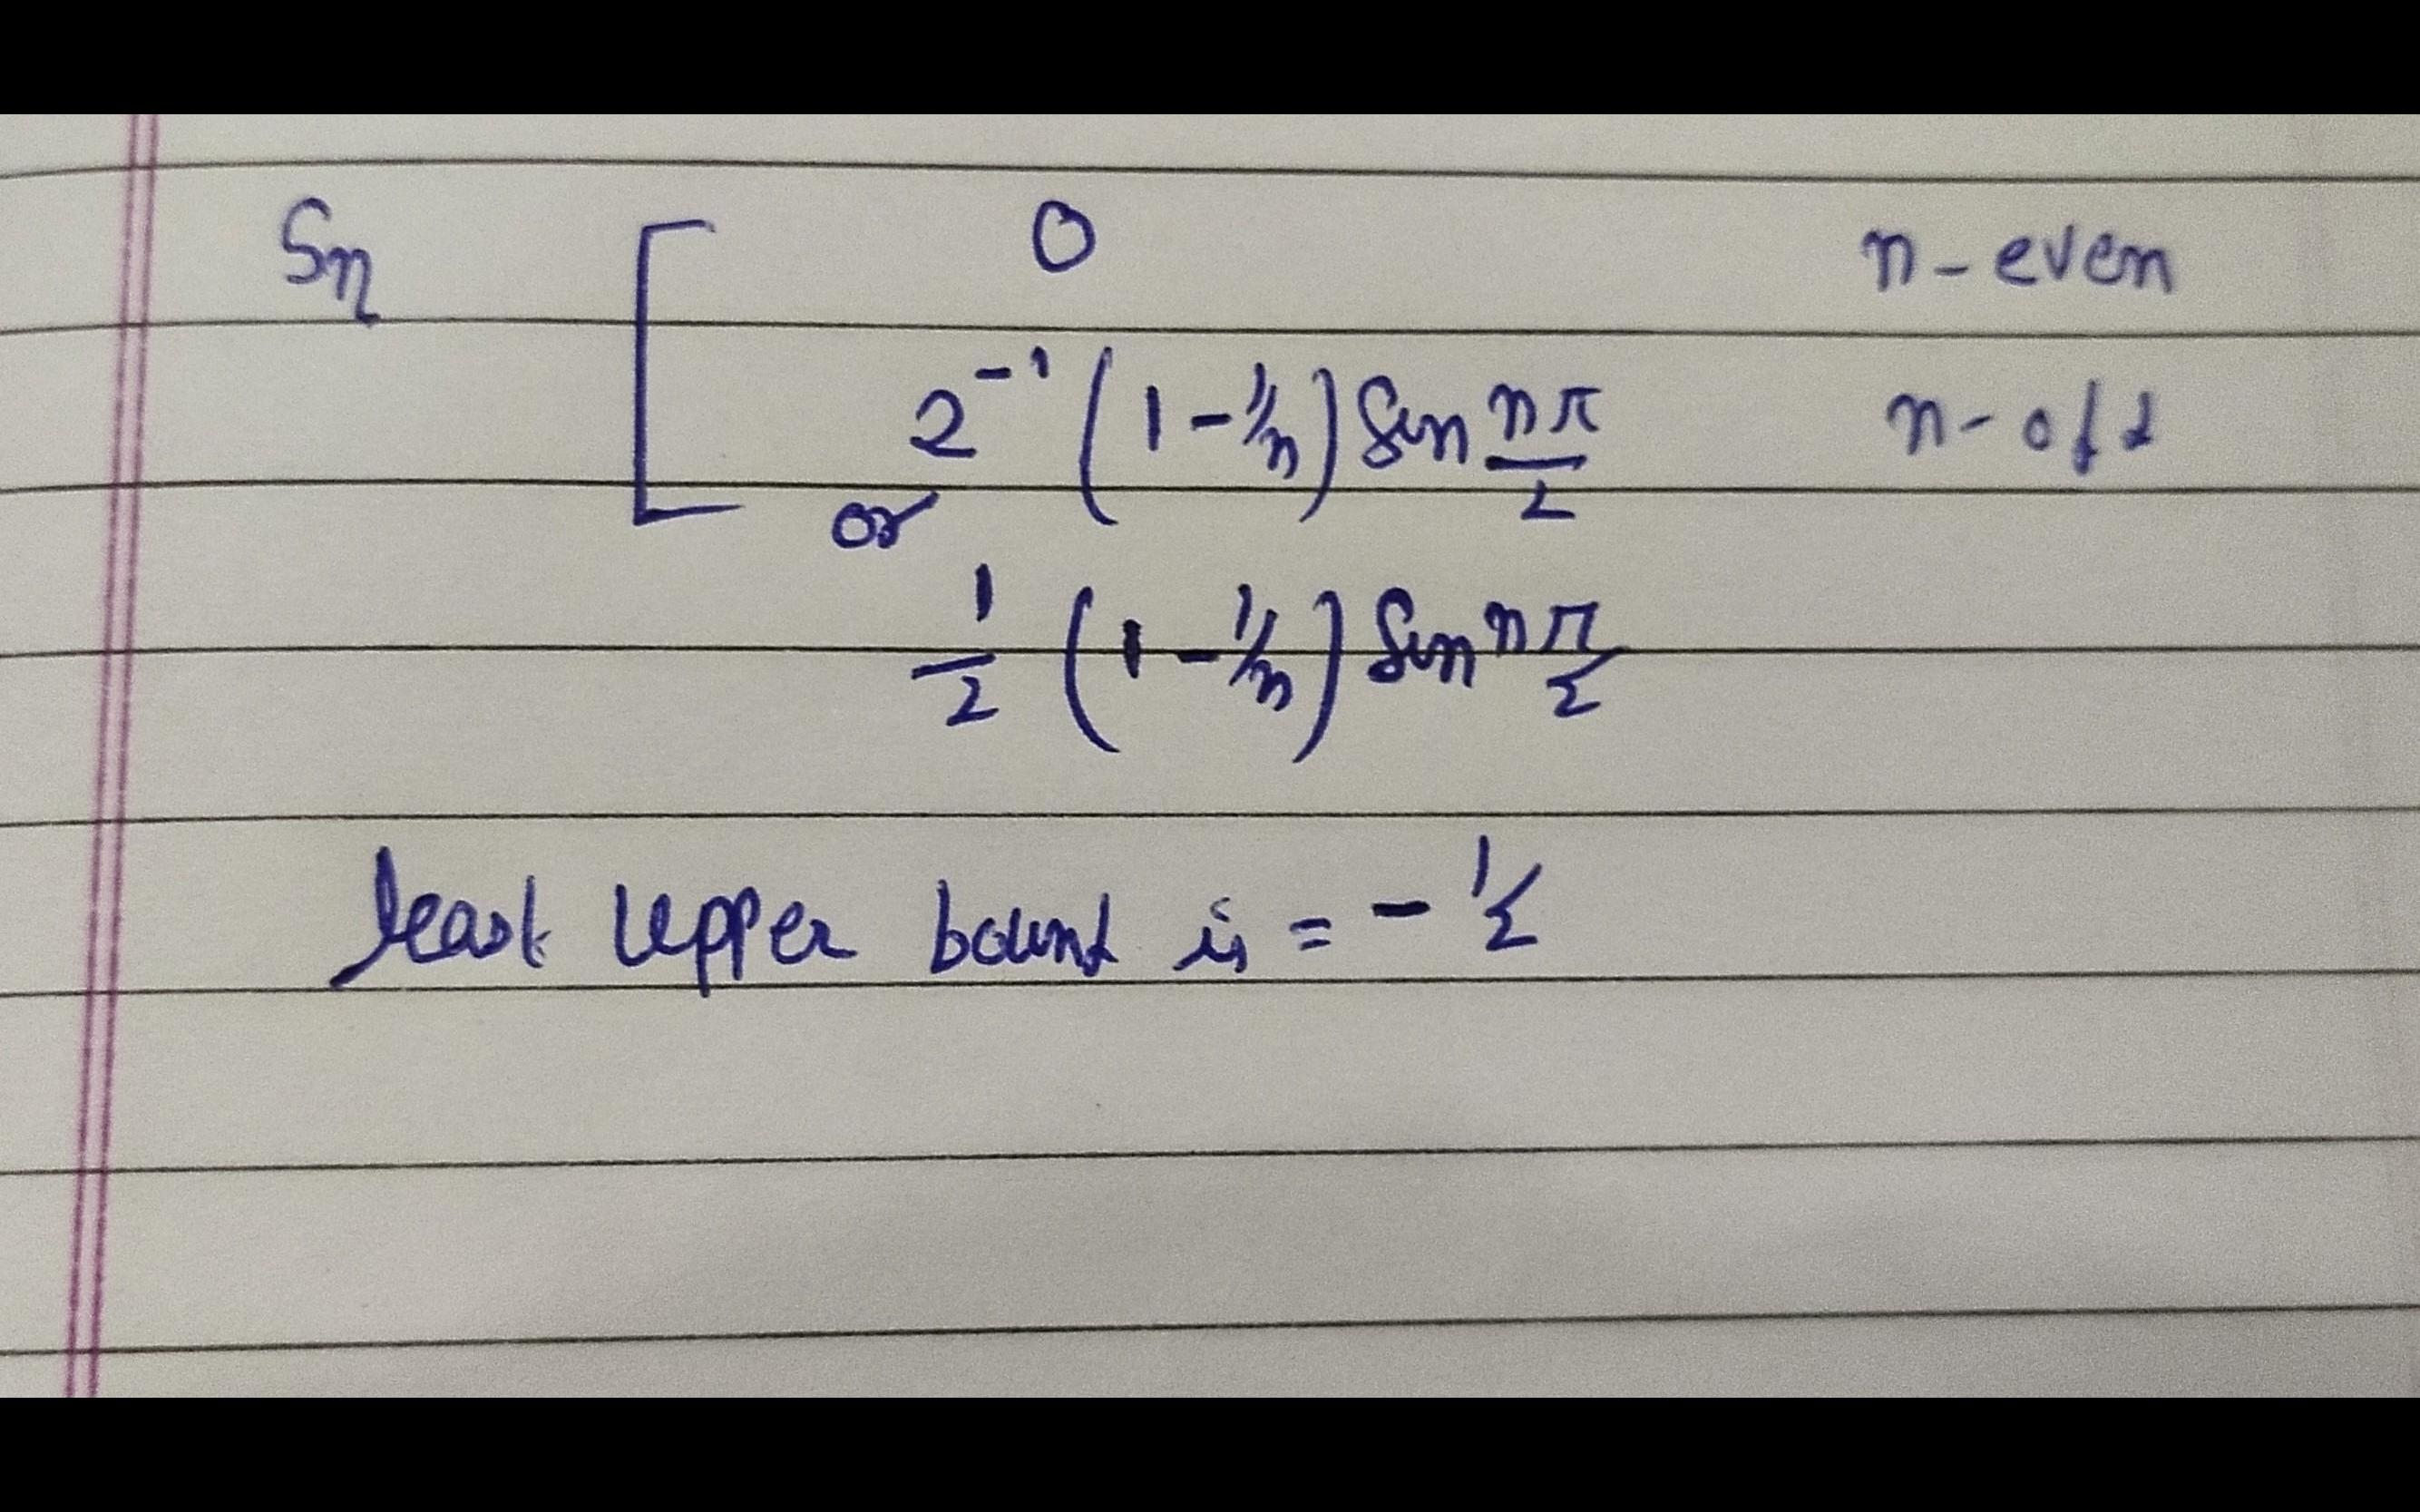 Sn [ 0 n - even
2⁻¹ (1 - 1/n) Sin nπ/2 n - odd
or
1/2 (1 - 1/n) Sin nπ/2
least upper bound is = - 1/2